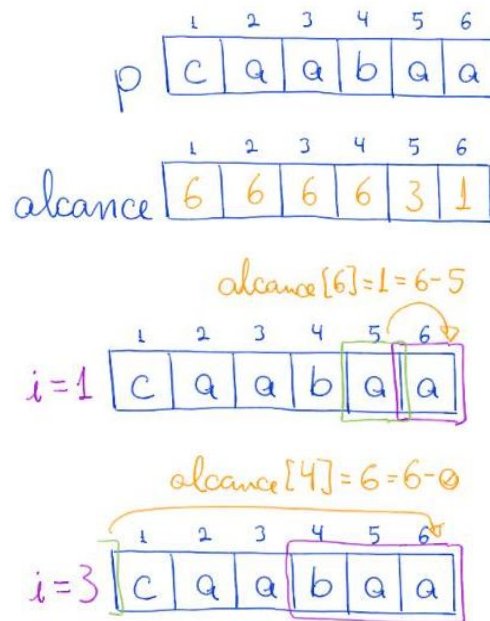 1 2 3 4 5 6
p c a a b a a
1 2 3 4 5 6
alcance 6 6 6 6 3 1
alcance[6]=1=6-5
1 2 3 4 5 6
i=1 c a a b a a
alcance[4]=6=6-0
1 2 3 4 5 6
i=3 c a a b a a